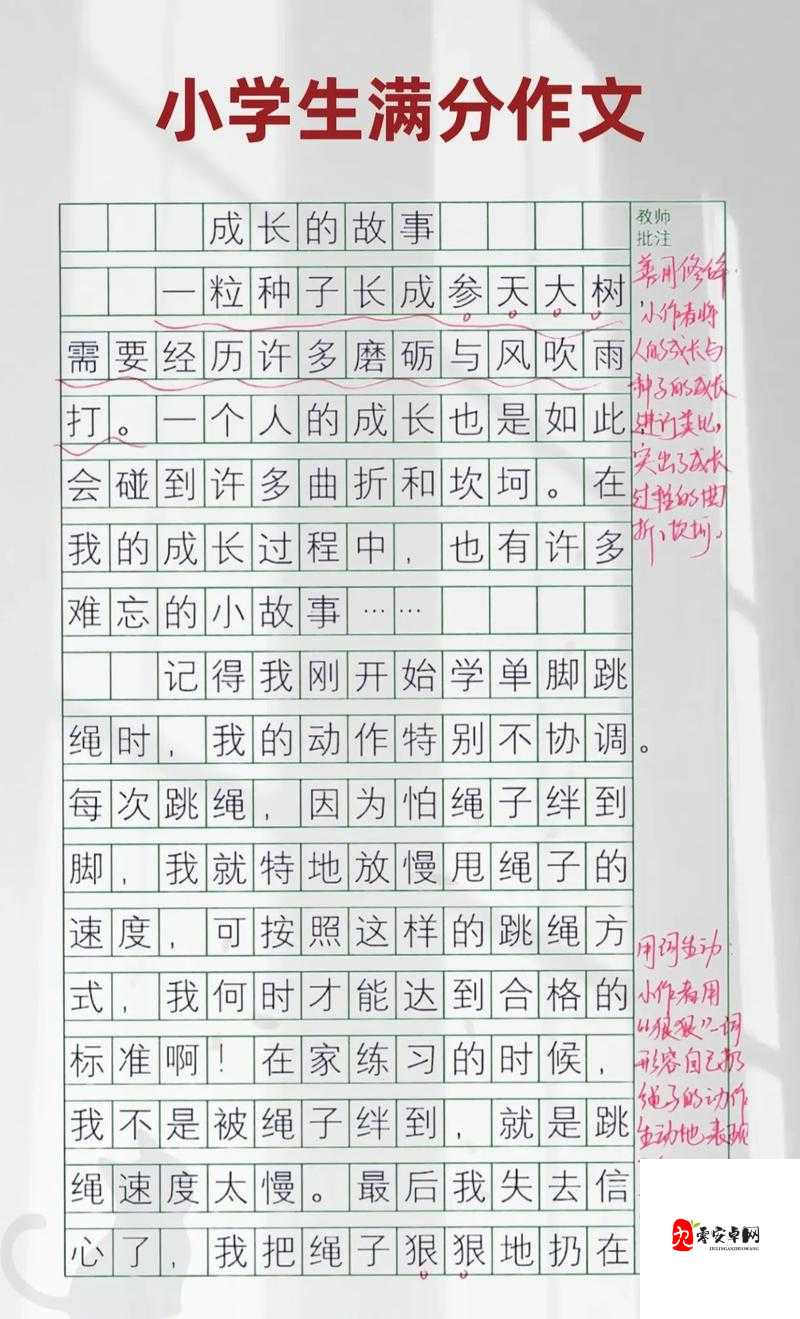 小学生满分作文
成长的故事
一粒种子长成参天大树
需要经历许多磨砺与风吹雨
打。一个人的成长也是如此,
会碰到许多曲折和坎坷。在
我的成长过程中，也有许多
难忘的小故事……
记得我刚开始学单脚跳
绳时，我的动作特别不协调。
每次跳绳，因为怕绳子绊到
脚，我就特地放慢甩绳子的
速度，可按照这样的跳绳方
式，我何时才能达到合格的
标准啊！在家练习的时候，
我不是被绳子绊到，就是跳
绳速度太慢。最后我失去信
心了，我把绳子狠狠地扔在
教师
批注
善用修辞
小作者将
人的成长与
种子的成长
进行类比，
突出了成长
过程的曲
折、坎坷。
用词生动
小作者用
“狠狠”一词
形容自己扔
绳子的动作
生动地表现
零安卓网